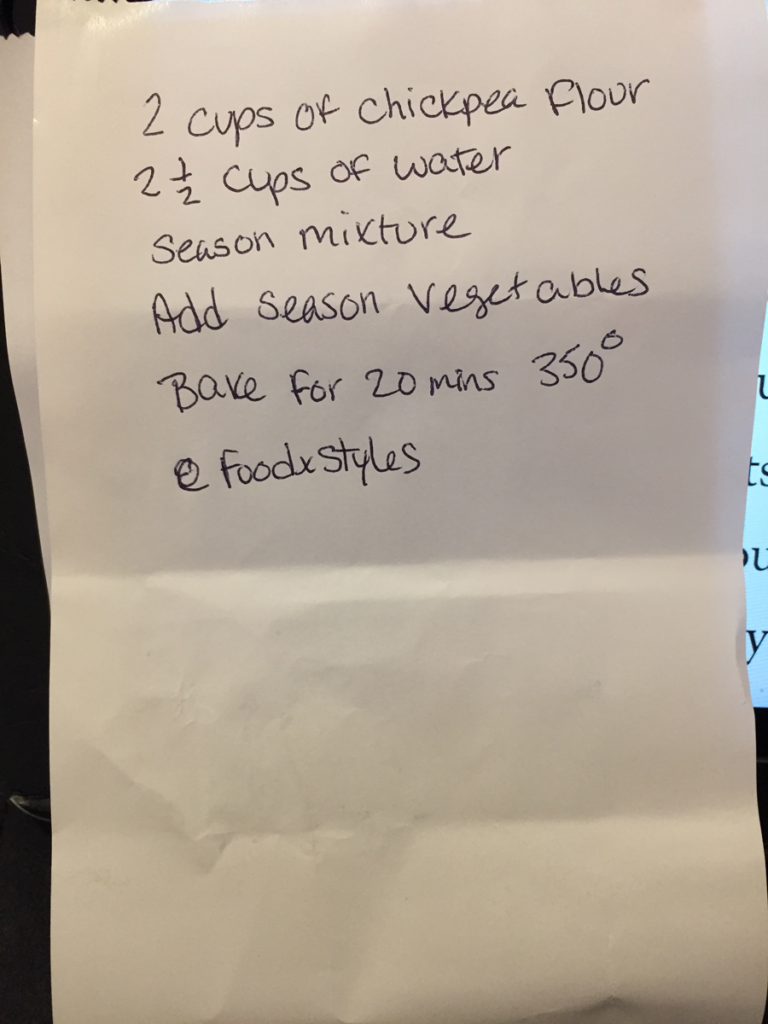 2 cups of chickpea flour
2 1/2 cups of water
Season mixture
Add season vegetables
Bake for 20 mins 350°
@foodxstyles